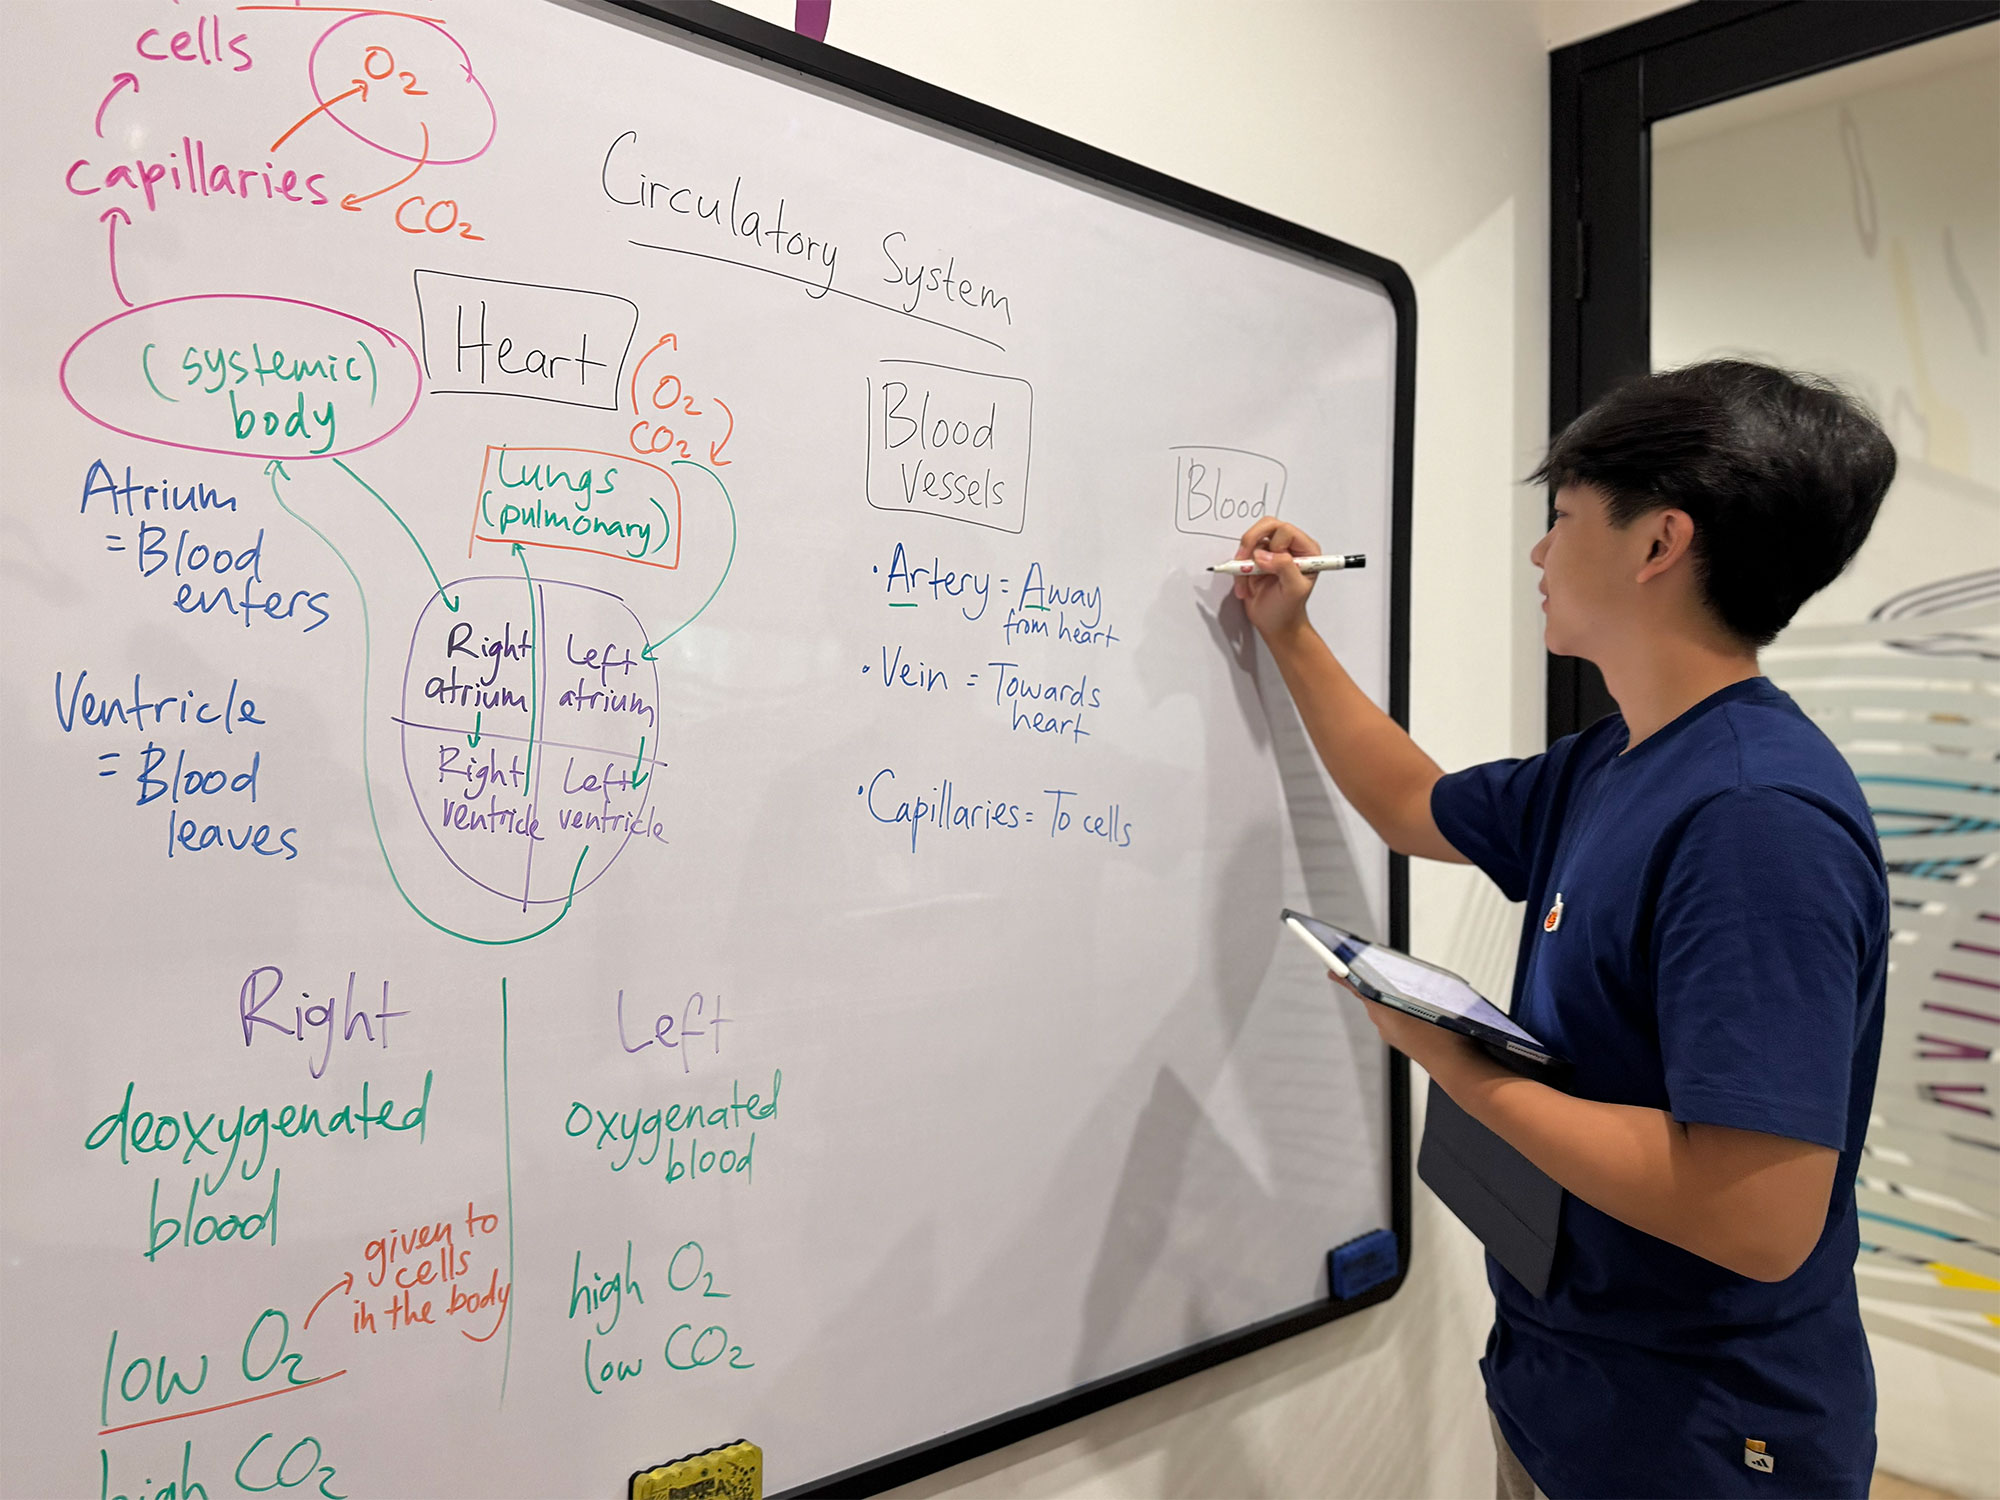 cells
O₂
capillaries
CO₂
Circulatory System
Heart
(systemic)
body
O₂
CO₂
Lungs
(pulmonary)
Blood
vessels
Blood
Atrium
= Blood
enters
Ventricle
= Blood
leaves
Right
atrium
Left
atrium
Right
ventricle
Left
ventricle
• Artery = Away
from heart
• Vein = Towards
heart
• Capillaries = To cells
Right
deoxygenated
blood
low O₂
given to
cells
in the body
high CO₂
Left
oxygenated
blood
high O₂
low CO₂